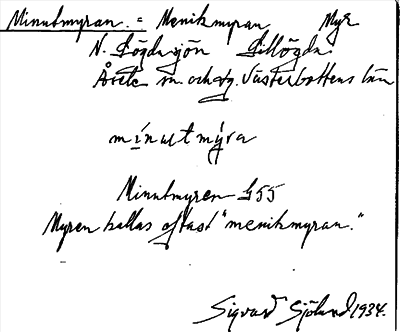 Minutmyran. = Menikmyran Myr
N. Lögdasjön Lillögda
Åsele sn. och tg. Västerbottens län
mínutmýra
Minutmyren G55
Myren kallas oftast "menikmyran."
Sigvard Sjölund 1934.